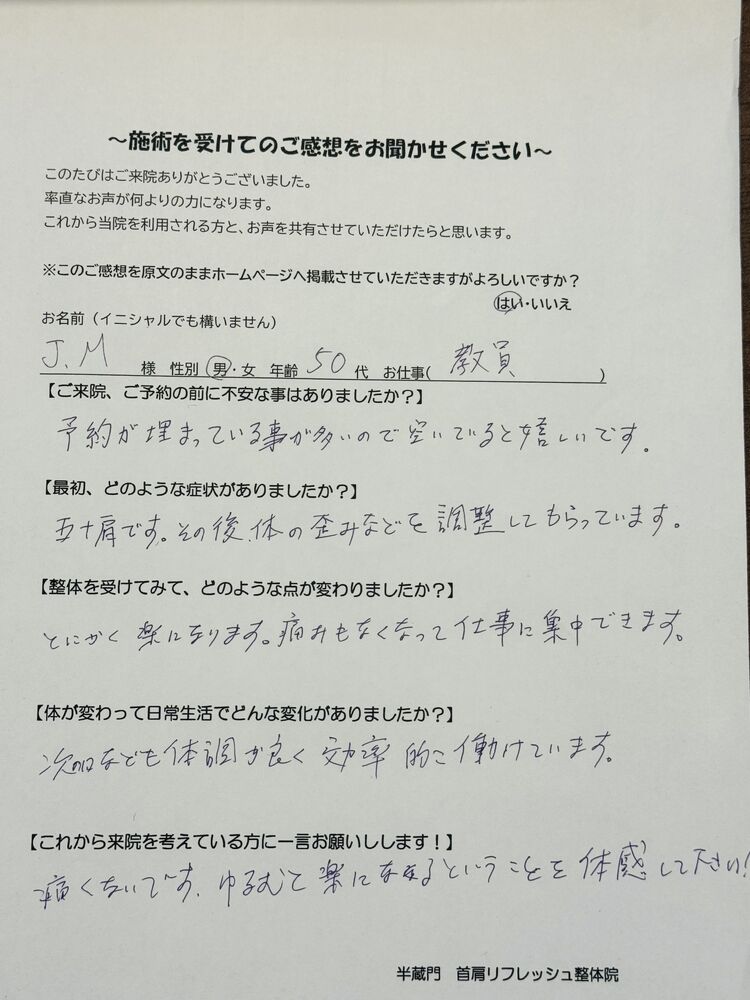 ～施術を受けてのご感想をお聞かせください～
このたびはご来院ありがとうございました。
率直なお声が何よりの力になります。
これから当院を利用される方と、お声を共有させていただけたらと思います。
※このご感想を原文のままホームページへ掲載させていただきますがよろしいですか？
はい・いいえ
お名前（イニシャルでも構いません）
J.M 様 性別 男・女 年齢 50 代 お仕事( 教員 )
【ご来院、ご予約の前に不安な事はありましたか？】
予約が埋まっている事が多いので空いていると嬉しいです。
【最初、どのような症状がありましたか？】
五十肩です。その後、体の歪みなどを調整してもらっています。
【整体を受けてみて、どのような点が変わりましたか？】
とにかく楽になります。痛みもなくなって仕事に集中できます。
【体が変わって日常生活でどんな変化がありましたか？】
次の日なども体調が良く効率的に働けています。
【これから来院を考えている方に一言お願いしします！】
痛くないです。ゆるむと楽になるということを体感して下さい!
半蔵門 首肩リフレッシュ整体院